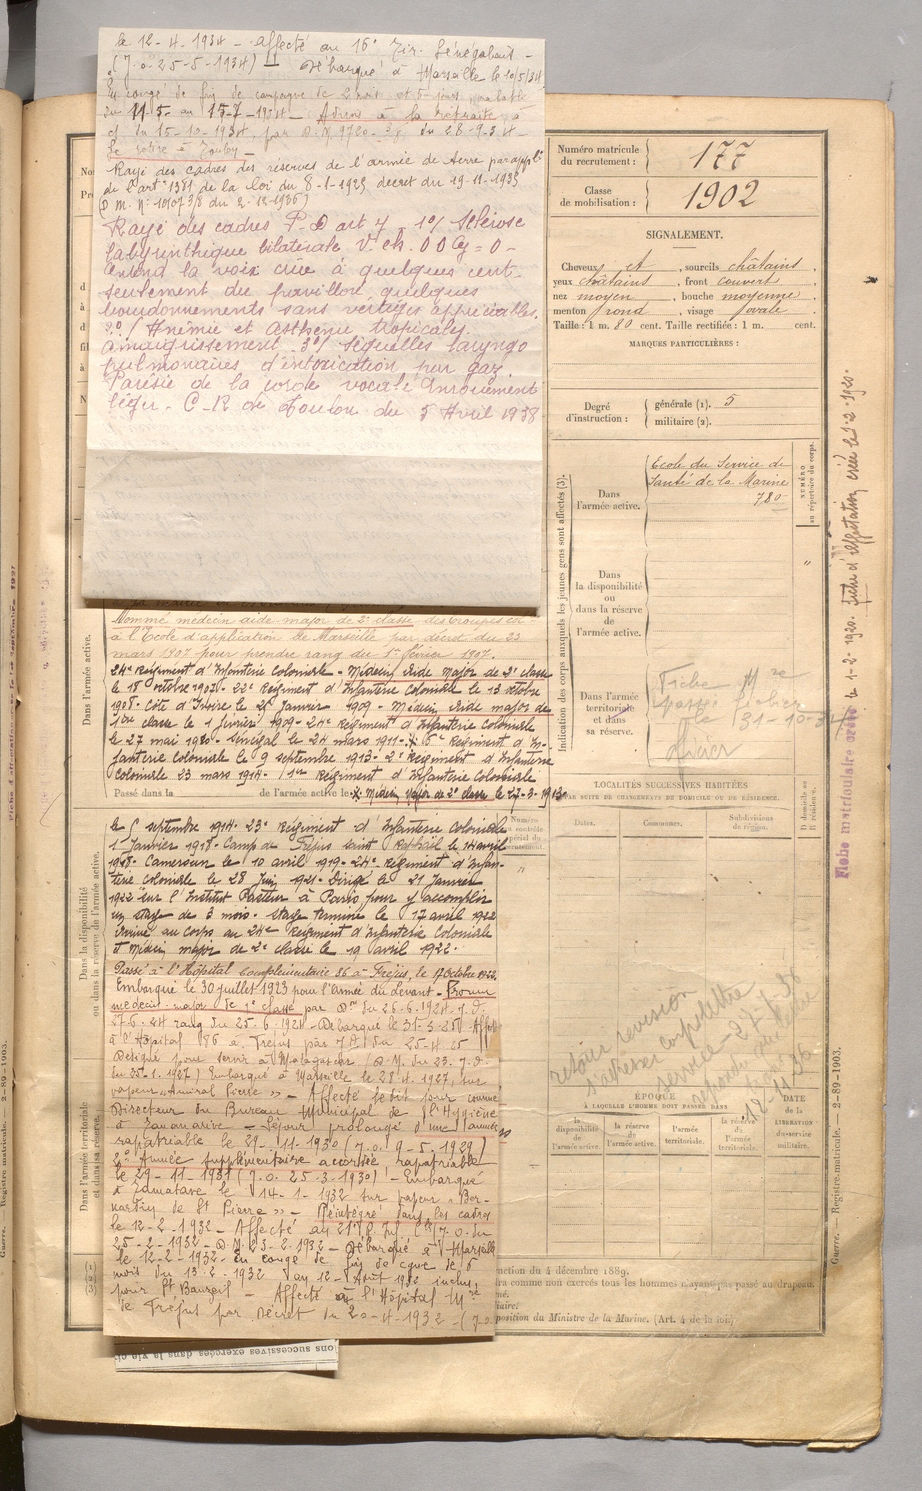 le 12-4-1934 - affecté au 16e Tir. Sénégalais -
(J.o. 25-5-1934) Débarqué à Marseille le 10/5/34
En congé de fin de campagne de 2 mois et 5 jours valable
du 11-5- au 15-7-1934 - Admis à la retraite à
du 15-10-1934, par D.M. 9720-3/8 du 28-9-34
Se retire à Toulon -
Rayé des cadres des réserves de l'armée de terre par appl.
de l'art. de la loi du 8-1-1925 décret du 19-11-1935
(D.M. No 10107 3/8 du 2-12-1936)
Rayé des cadres P.D art 7 - 1°/ Sclérose
labyrinthique bilatérale V. ch. O D G = 0 -
entend la voix criée à quelques cent.
seulement du pavillon, quelques
bourdonnements sans vertiges appréciables.
2°/ Anémie et Asthénie tropicales.
amaigrissement 3°/ Séquelles laryngo
pulmonaires d'intoxication par gaz.
Parésie de la corde vocale Enrouement
léger - C.R de Toulon du 5 Avril 1938
Numéro matricule
du recrutement : 177
Classe
de mobilisation : 1902
SIGNALEMENT.
Cheveux et , sourcils châtains ,
yeux châtains , front couvert ,
nez moyen , bouche moyenne ,
menton rond , visage ovale .
Taille : 1 m. 80 cent. Taille rectifiée : 1 m. cent.
MARQUES PARTICULIÈRES :
Degré
d'instruction :
générale (1). 5
militaire (2).
Indication des corps auxquels les jeunes gens sont affectés (3).
Dans
l'armée active.
Ecole du Service de
Santé de la Marine
780
NUMÉRO
au répertoire du corps.
Dans
la disponibilité
ou
dans la réserve
de
l'armée active.
Dans
l'armée
territoriale
et dans
sa réserve.
Fiche Mre
passée fichier
le 31-10-34
Dans l'armée active.
Nommé médecin aide-major de 2e classe des troupes col
à l'Ecole d'application de Marseille par décret du 23
mars 1907 pour prendre rang du 1er février 1907.
24e Régiment d'Infanterie Coloniale - Médecin Aide Major de 2e classe
le 18 octobre 1907 - 22e Régiment d'Infanterie Coloniale le 13 octobre
1908 - Côte d'Ivoire le 25 Janvier 1909 - Médecin Aide major de
1ère classe le 1 février 1909 - 24e Régiment d'Infanterie Coloniale
le 27 mai 1910 - Sénégal le 24 mars 1911 - 6e Régiment d'In-
fanterie coloniale le 9 septembre 1913 - 2e Régiment d'Infanterie
Coloniale 23 mars 1914 / 1er Régiment d'Infanterie Coloniale
Passé dans la de l'armée active le Médecin Major de 2e classe le 27-3-1913
Dans la disponibilité
ou dans la réserve de l'armée active.
le 5 septembre 1914 - 23e Régiment d'Infanterie Coloniale
1 Janvier 1918 - Camp de Fréjus Saint Raphaël le 14 avril
1918 - Cameroun le 10 avril 1919 - 24e Régiment d'Infan-
terie coloniale le 28 Juin 1921 - Dirigé le 21 Janvier
1922 sur l'Institut Pasteur à Paris, pour y accomplir
un stage de 3 mois - Stage terminé le 17 avril 1922
Arrivé au corps au 24e Régiment d'Infanterie Coloniale
et Médecin major de 2e classe le 19 avril 1922 -
Passé à l'Hôpital complémentaire 86 à Fréjus, le 17 Octobre 1922.
Embarqué le 30 juillet 1923 pour l'Armée du Levant - Promu
médecin-major de 1e classe par Don du 25-6-1924 - J.O.
27-6-24 rang du 25-6-1924 - Débarqué le 31-3-25 Affect
à l'Hôpital 86 à Fréjus par J.O. du 25-4-25
Désigné pour servir à Madagascar (D.M. du 23. J.O.
du 25-1-1927) Embarqué à Marseille le 28-4-1927, sur
vapeur "Amiral Pierre" - Affecté comme
Directeur du Bureau Municipal de l'Hygiène
à Tananarive - Séjour prolongé d'une année
rapatriable le 29-11-1930 (J.O. 9-5-1929)
2e Année supplémentaire accordée rapatriable
le 29-11-1931 (J.O. 25-3-1930) - Embarqué
à Tamatave le 14-1-1932 sur vapeur "Ber-
nardin de St Pierre" - Réintégré dans les cadres
le 12-2-1932 - Affecté au 21e R.
25-2-1932 - D.M. 23-2-1932 - Débarqué à Marseille
le 12-2-1932 - En congé de fin de cgne de 6
mois du 13-2-1932 au 12-Août 1932 inclus,
pour St Bauzeil - Affecté à l'Hôpital Mre
de Fréjus par Décret du 20-4-1932 - (J.O.
Dans l'armée territoriale
et dans sa réserve.
LOCALITÉS SUCCESSIVES HABITÉES
PAR SUITE DE CHANGEMENTS DE DOMICILE OU DE RÉSIDENCE.
Dates.
Communes.
Subdivisions
de région.
D domicile ou
R résidence.
retour révision
service - 27-7-36
18-11-36
ÉPOQUE
À LAQUELLE L'HOMME DOIT PASSER DANS
la
disponibilité
de
l'armée active.
la réserve
de
l'armée active.
l'armée
territoriale.
la réserve
de
l'armée
territoriale.
DATE
de la
LIBÉRATION
du service
militaire.
nction du 4 décembre 1889.
ra comme non exercés tous les hommes n'ayant pas passé au drapeau.
position du Ministre de la Marine. (Art. 4 de la loi.)
Guerre. — Registre matricule. — 2-89-1903.
Fiche matriculaire créée le 1-2-1920. Fiche d'affectation créée le 1-2-1920.
Guerre. — Registre matricule. — 2-89-1903.
ons successives exercées dans la vie ci